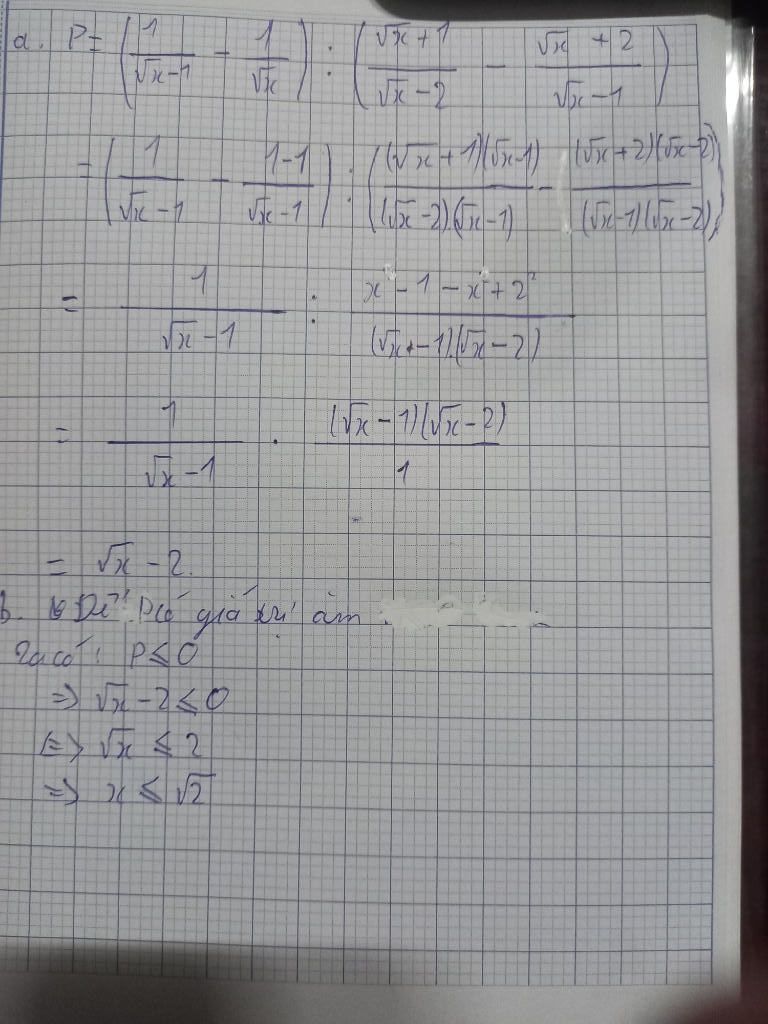 a. P = (1/(√x-1) - 1/√x) : ((√x+1)/(√x-2) - (√x+2)/(√x-1))
= (1/(√x-1) - (1-1)/(√x-1)) : ((√x+1)(√x-1)/(√x-2)(√x-1) - (√x+2)(√x-2)/(√x-1)(√x-2))
= 1/(√x-1) : (x-1-x+2²)/(√x-1)(√x-2)
= 1/(√x-1) . (√x-1)(√x-2)/1
= √x - 2.
b. Để P có giá trị âm
Ta có: P ≤ 0
=> √x - 2 ≤ 0
<=> √x ≤ 2
=> x ≤ √2